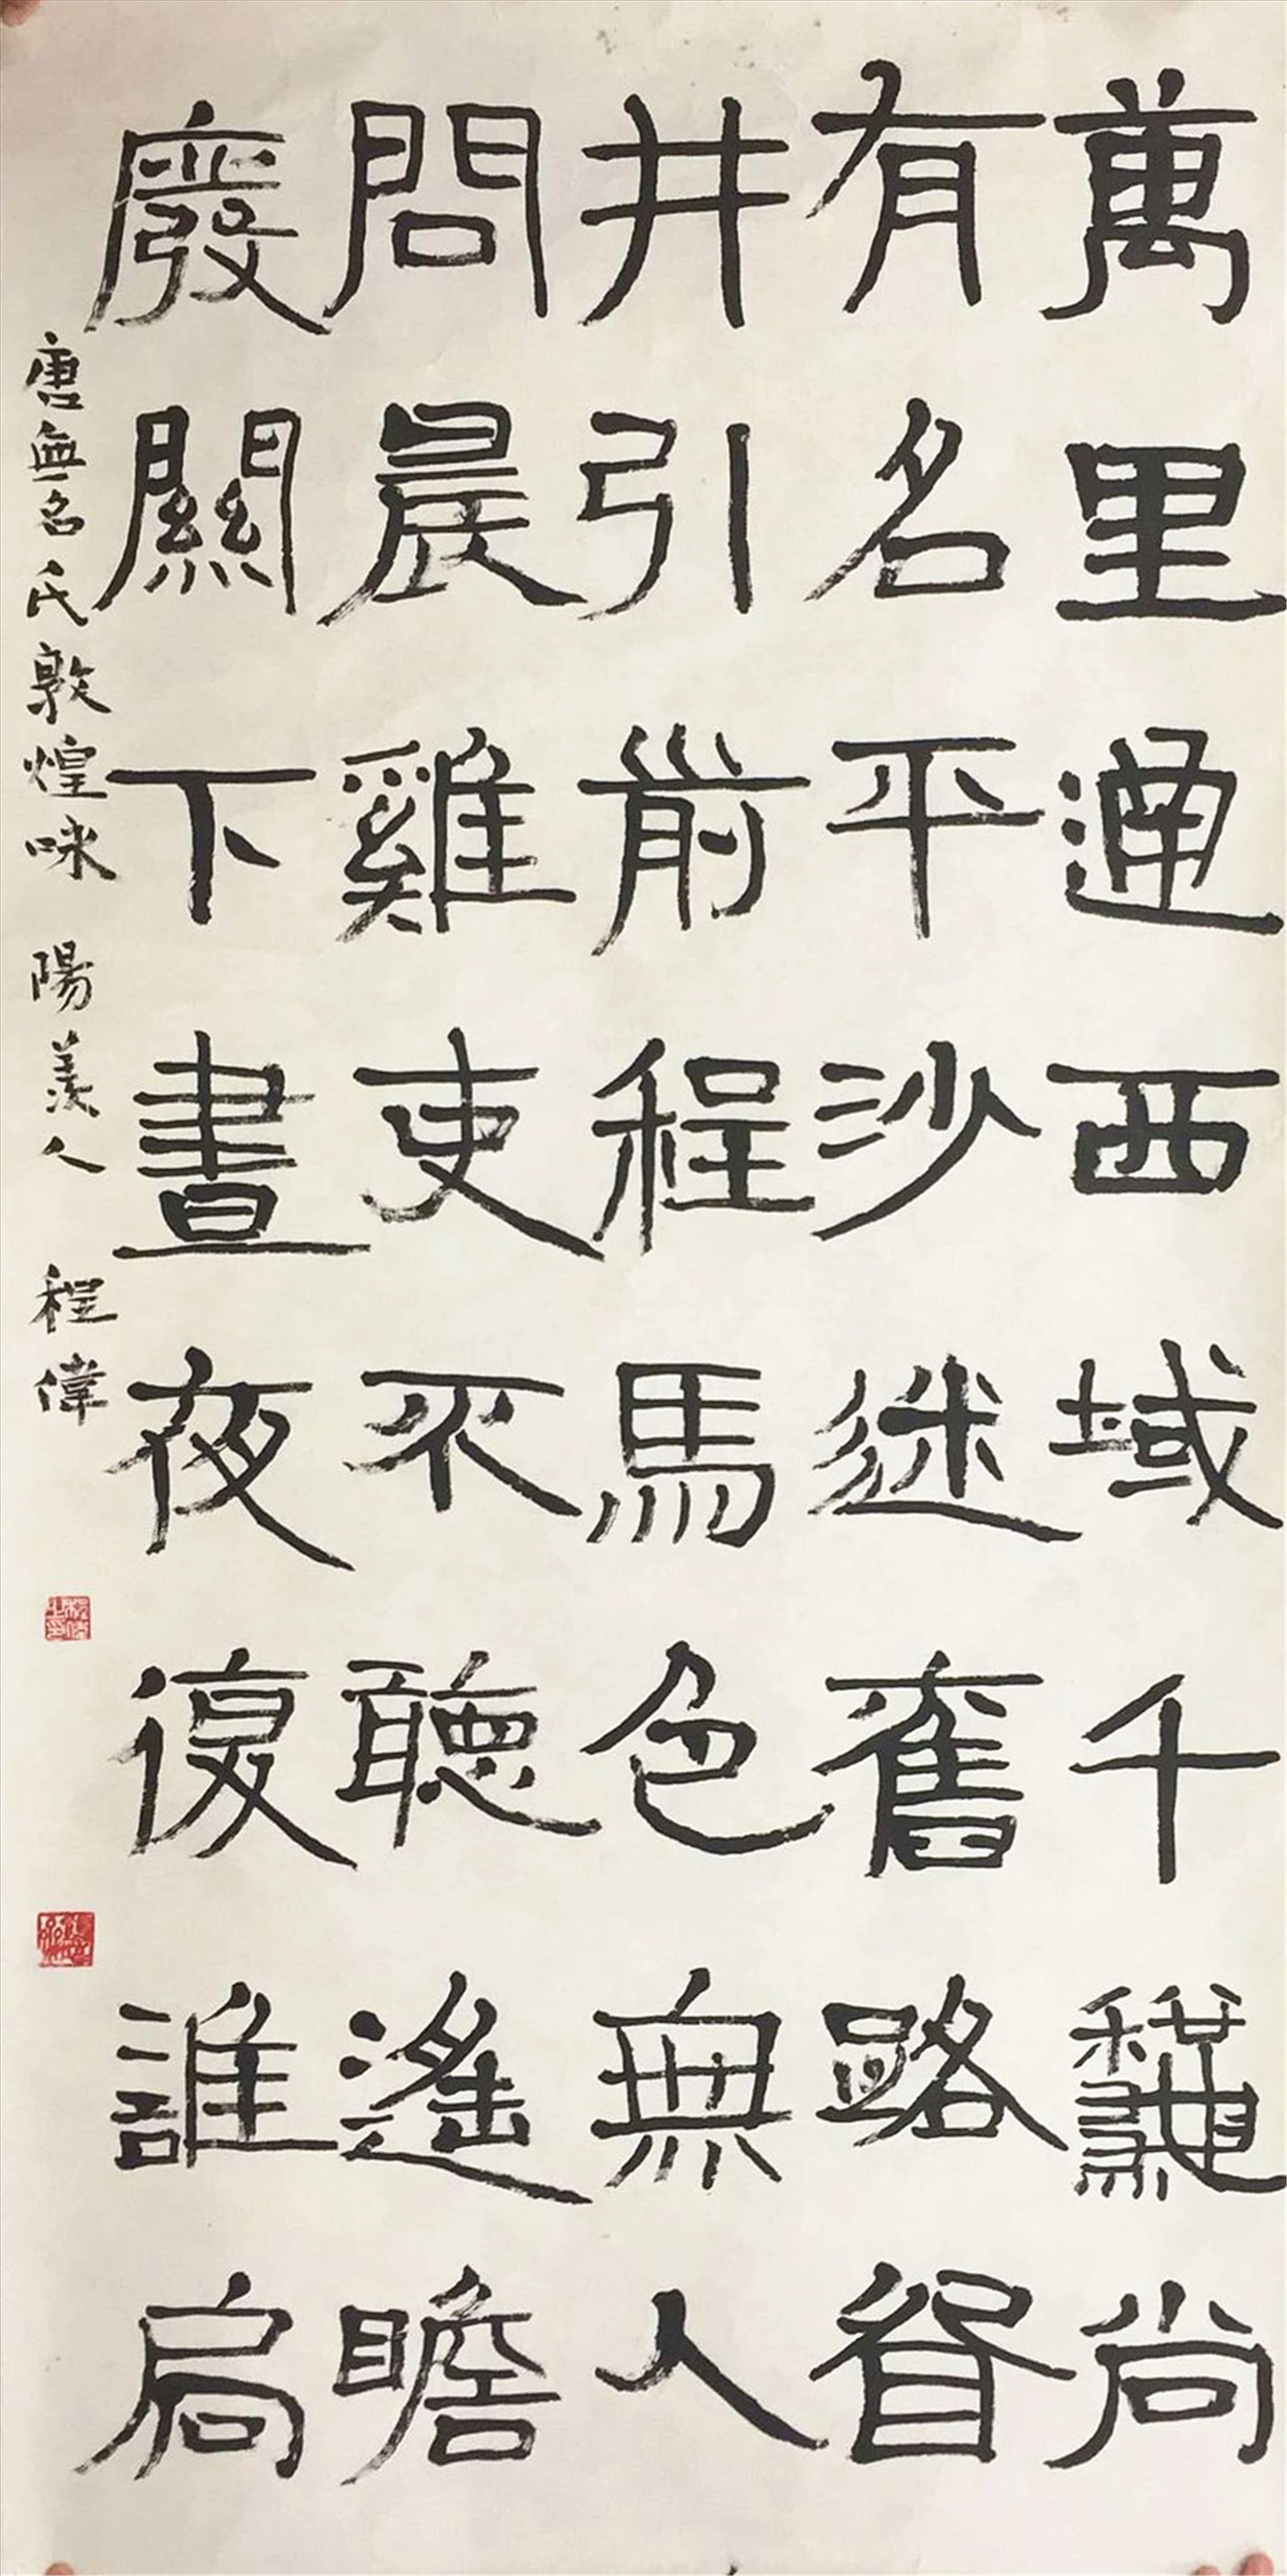 萬里通西域千龝尚
有名平沙迷舊路眢
井引前程馬色無人
問晨雞吏不聽遙瞻
廢關下晝夜復誰扃
唐無名氏敦煌咏 陽羨人 程偉